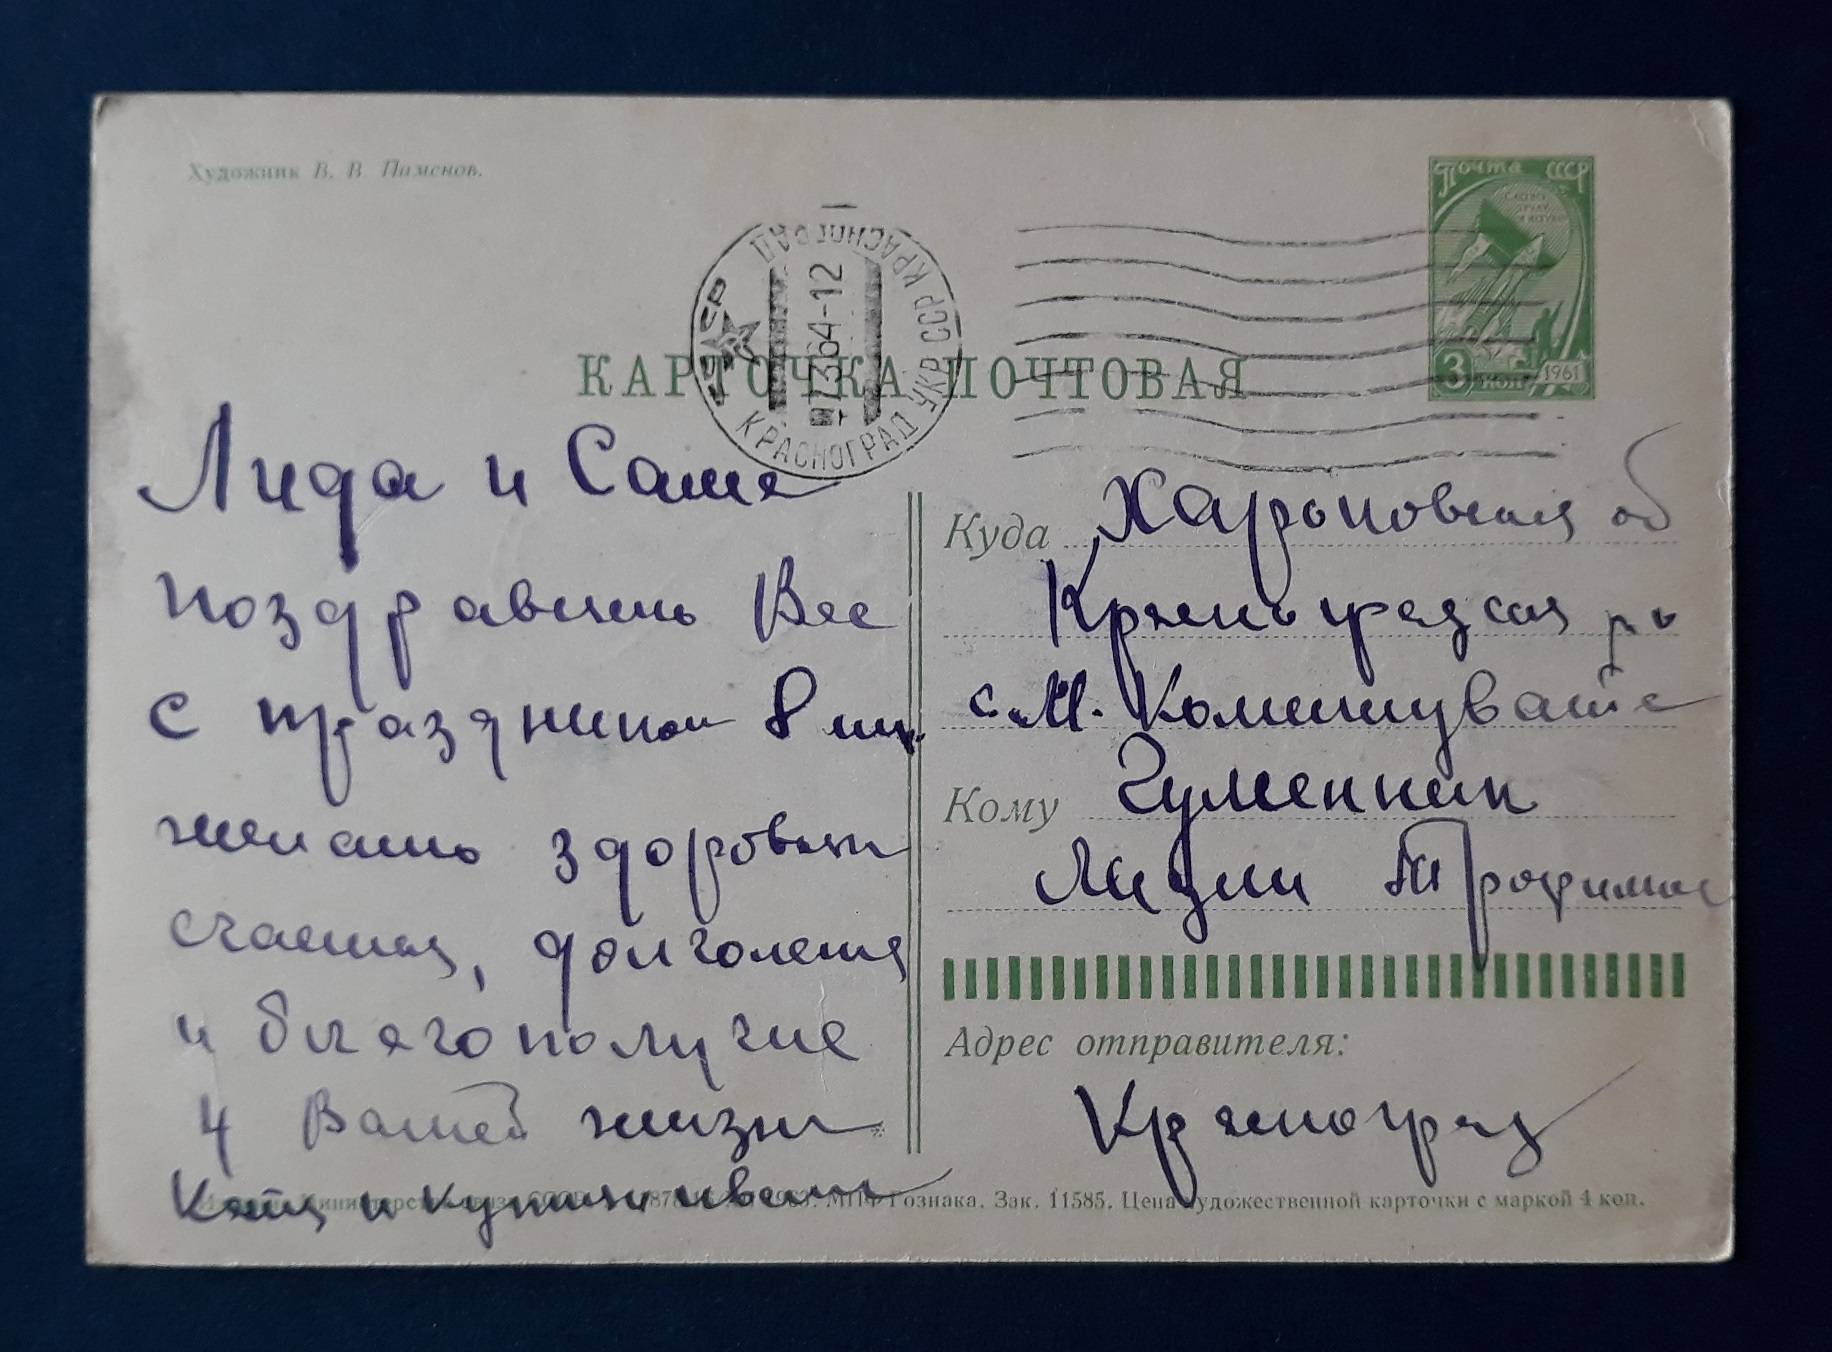 Художник В. В Пименов.
Почта СССР
3 коп 1961
СССР
КРАСНОГРАД УКР ССР КРАСНОГРАД
7364-12
КАРТОЧКА ПОЧТОВАЯ
Лида и Саше
поздравляю Вас
с праздником 8 мар.
желаю здоровья
счастья, долголетия
и благополучие
ч Вашей жизни
Катя и
Куда Харьковская об
Красноградская р-н
с. М. Комишувате
Кому Гуменник
Лидии Трофимов
Адрес отправителя:
Красноград
Министерства связи СССР Гознака. Зак. 11585. Цена художественной карточки с маркой 4 коп.